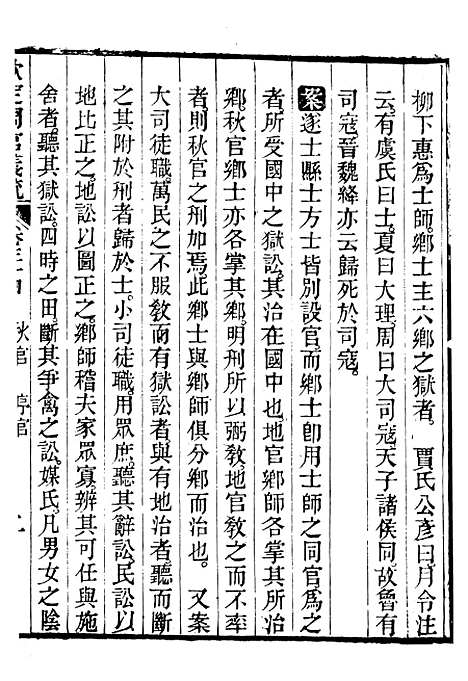 柳下惠爲士師鄉士主六鄉之獄者。　賈氏公彦曰月令注
云有虞氏曰士。夏曰大理。周曰大司寇。天子諸侯同。故魯有
司寇。晉魏絳亦云歸死於司寇。
案遂士縣士方士皆別設官。而鄉士卽用士師之同官。爲之
者所受國中之獄訟。其治在國中也。地官鄉師各掌其所治
鄉。秋官鄉士亦各掌其鄉。明刑所以弼敎。地官敎之而不率
者。則秋官之刑加焉。此鄉士與鄉師俱分鄉而治也。　又案
大司徒職萬民之不服敎而有獄訟者。與有地治者聽而斷
之。其附於刑者歸於士。小司徒職。用眾庶聽其辭訟。民訟以
地比正之。地訟以圖正之。鄉師稽夫家眾寡。辨其可任與施
舍者。聽其獄訟。四時之田。斷其爭禽之訟。媒氏。凡男女之陰
欽定周官義疏　秋官